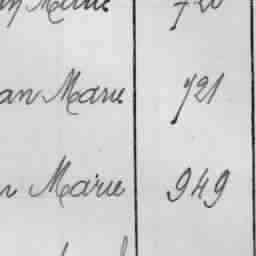 Marie 720
an Marie 721
Marie 949